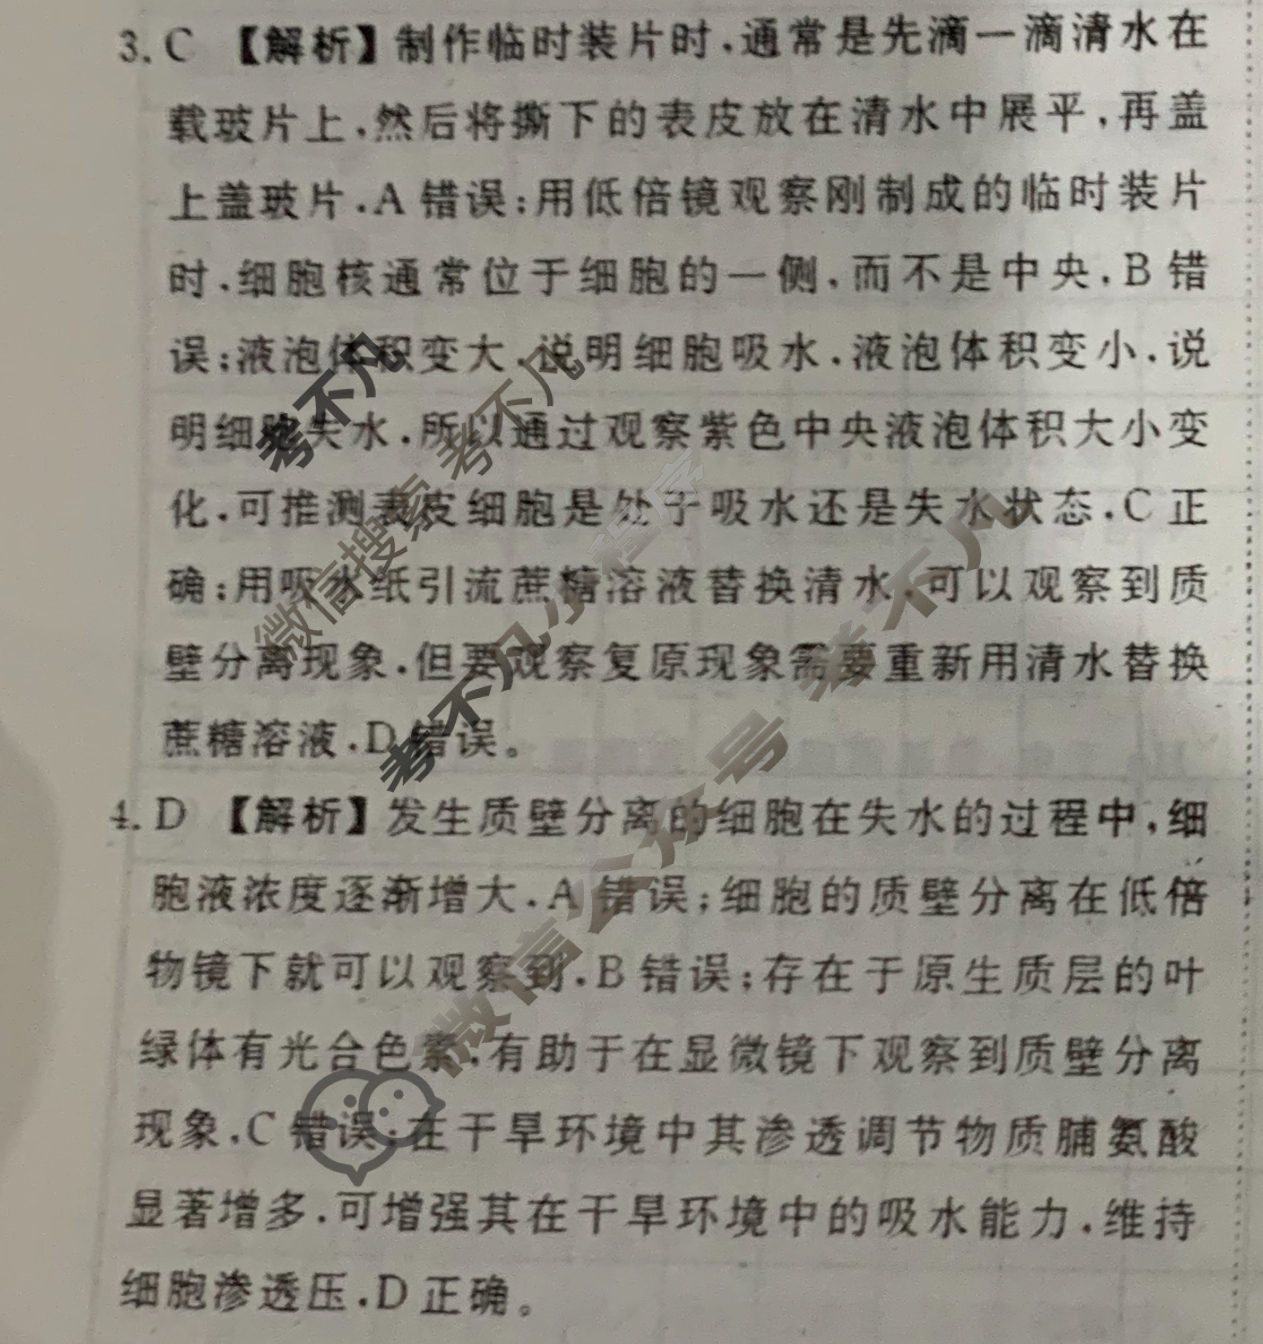 3. C 【解析】制作临时装片时,通常是先滴一滴清水在
载玻片上,然后将撕下的表皮放在清水中展平,再盖
上盖玻片,A 错误;用低倍镜观察刚制成的临时装片
时,细胞核通常位于细胞的一侧,而不是中央,B 错
误;液泡体积变大,说明细胞吸水,液泡体积变小,说
明细胞失水,所以通过观察紫色中央液泡体积大小变
化,可推测表皮细胞是处于吸水还是失水状态,C 正
确;用吸水纸引流蔗糖溶液替换清水,可以观察到质
壁分离现象,但要观察复原现象需要重新用清水替换
蔗糖溶液,D 错误。
4. D 【解析】发生质壁分离的细胞在失水的过程中,细
胞液浓度逐渐增大,A 错误;细胞的质壁分离在低倍
物镜下就可以观察到,B 错误;存在于原生质层的叶
绿体有光合色素,有助于在显微镜下观察到质壁分离
现象,C 错误;在干旱环境中其渗透调节物质脯氨酸
显著增多,可增强其在干旱环境中的吸水能力,维持
细胞渗透压,D 正确。
考不凡
微信搜索 考不凡
考不凡小程序
微信公众号 考不凡